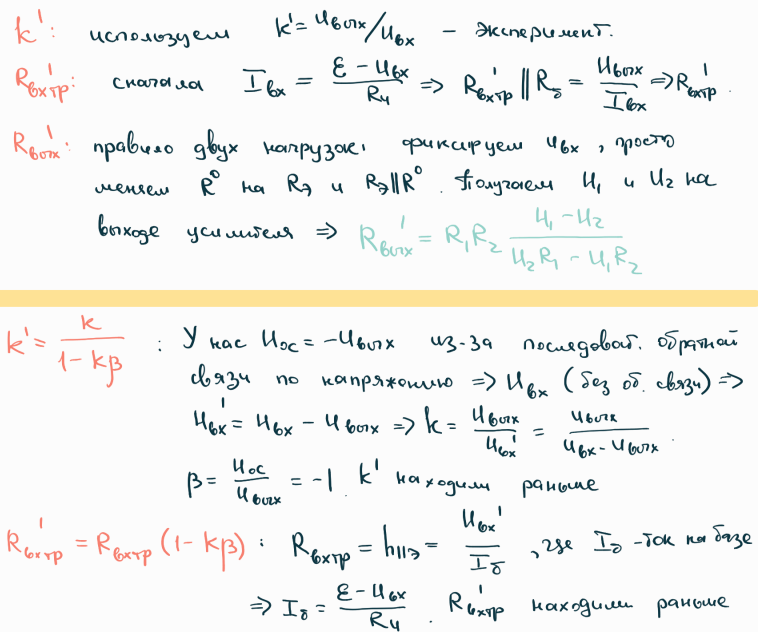 k': используем k' = Uвых/Uвх – эксперимент.
R'вхтр: сначала Iвх = (ε – Uвх)/R4 ⇒ R'вхтр || Rб = Uвых/Iвх ⇒ R'вхтр.
R'вых: правило двух нагрузок: фиксируем Uвх, просто
меняем R⁰ на Rэ и Rэ||R⁰. Получаем U₁ и U₂ на
выходе усилителя ⇒ R'вых = R₁R₂ (U₁ – U₂)/(U₂R₁ – U₁R₂)
k' = k/(1 – kβ) : У нас Uос = –Uвых из-за последоват. обратной
связи по напряжению ⇒ Uвх (без об. связи) ⇒
U'вх = Uвх – Uвых ⇒ k = Uвых/U'вх = Uвых/(Uвх – Uвых).
β = Uос/Uвых = –1. k' находили раньше
R'вхтр = Rвхтр (1 – kβ) : Rвхтр = h11э = U'вх/Iб, где Iб – ток на базе
⇒ Iб = (ε – Uвх)/R4. R'вхтр находили раньше